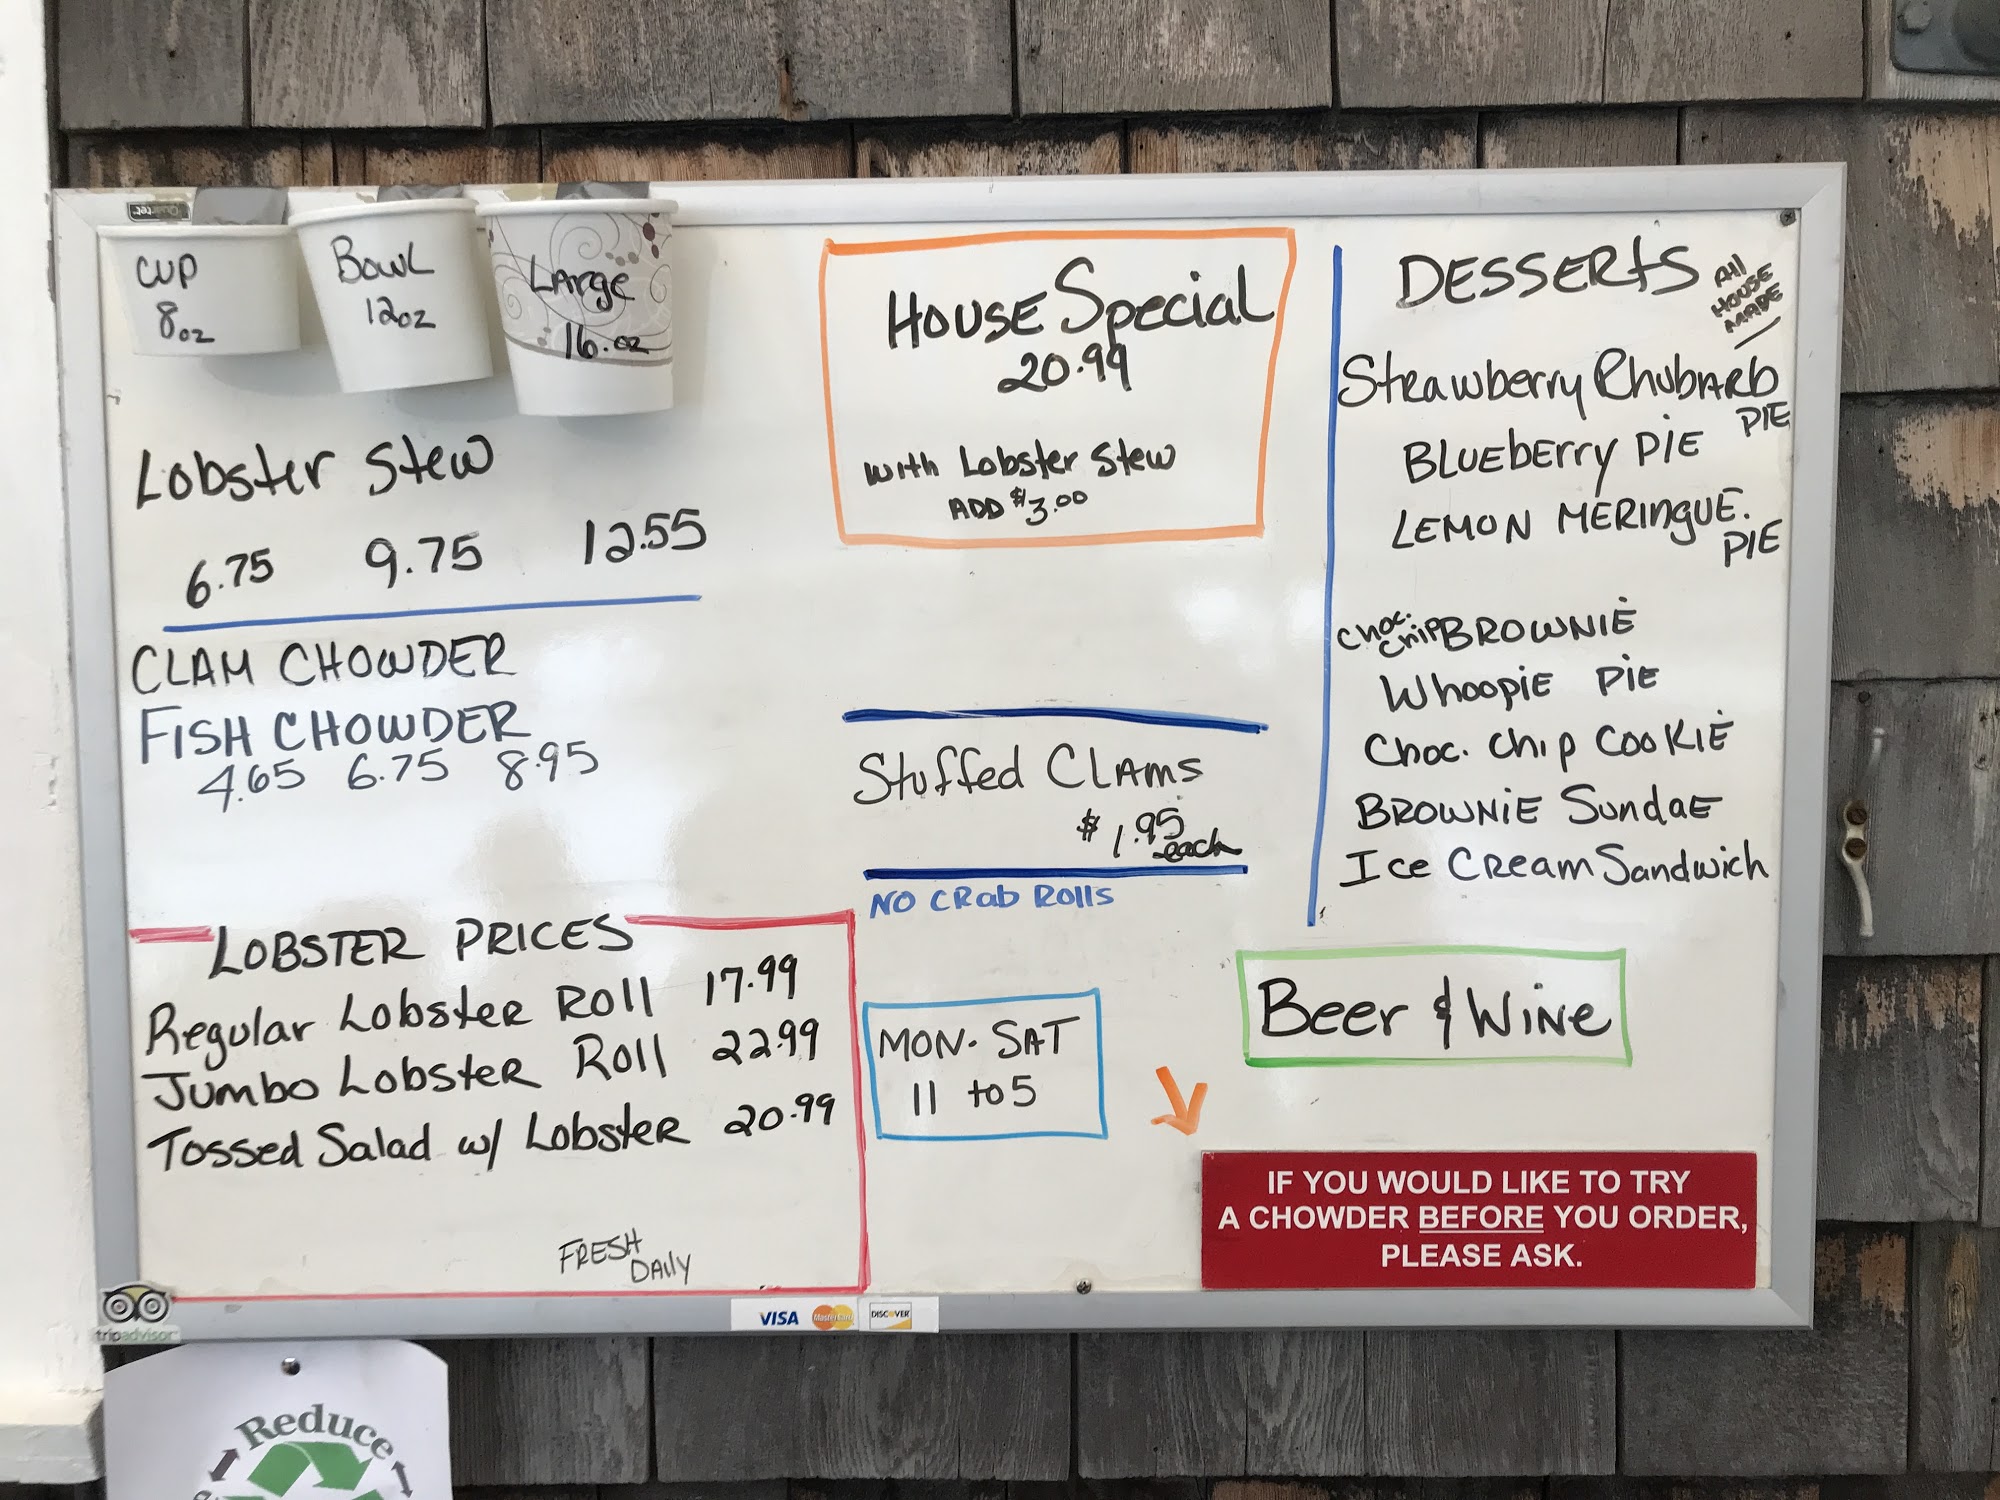 CUP
8oz
BOWL
12oz
LARge
16.oz
Lobster Stew
6.75 9.75 12.55
CLAM CHOWDER
FISH CHOWDER
4.65 6.75 8.95
LOBSTER PRICES
Regular Lobster Roll 17.99
Jumbo Lobster Roll 22.99
Tossed Salad w/ Lobster 20.99
FRESH
DAily
HOUSE Special
20.99
with Lobster Stew
ADD $3.00
Stuffed CLAMS
$1.95
each
NO CRab Rolls
MON. SAT
11 to 5
DESSERtS
All
HOUSE
MADE
Strawberry RhubARb
PIE
BLUEbErry PIE
LEMON MERINgUE.
PIE
choc.
chip BROWNIE
Whoopie PiE
Choc. Chip COOKIE
BROWNiE SundaE
Ice Cream Sandwich
Beer & Wine
IF YOU WOULD LIKE TO TRY
A CHOWDER BEFORE YOU ORDER,
PLEASE ASK.
tripadvisor
VISA MasterCard DISCOVER
Reduce
Quartet